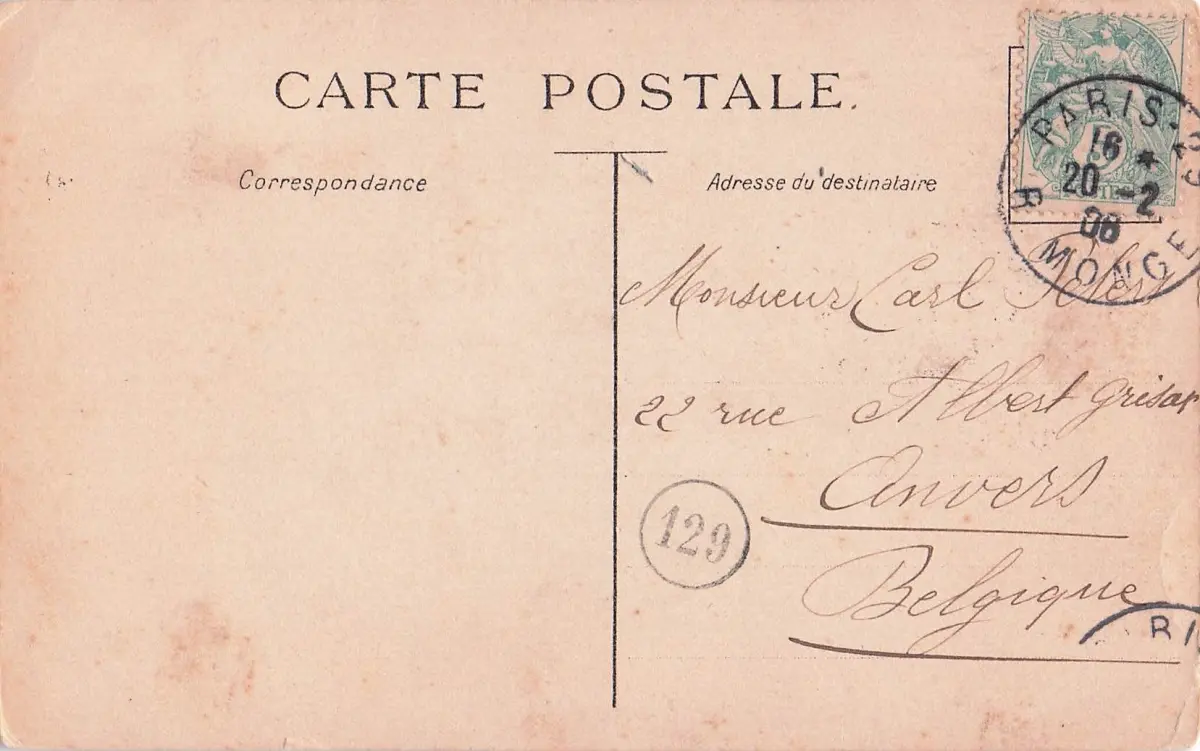 CARTE POSTALE.
Correspondance
Adresse du destinataire
PARIS
16
20 -2
08
R MONGE
5
Monsieur Carl
22 rue Albert Grisar
Anvers
Belgique
129